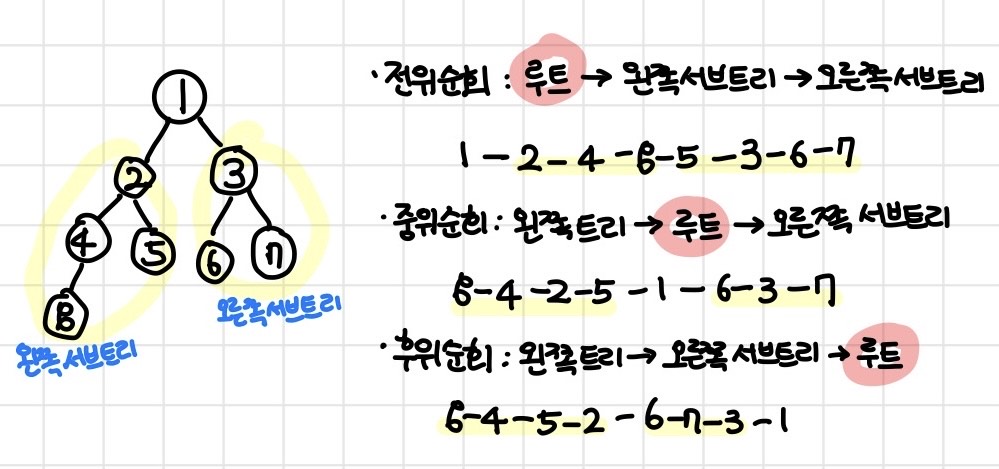 1
2
3
4
5
6
7
8
왼쪽 서브트리
오른쪽 서브트리
· 전위순회 : 루트 → 왼쪽서브트리 → 오른쪽 서브트리
1 - 2 - 4 - 8 - 5 - 3 - 6 - 7
· 중위순회 : 왼쪽트리 → 루트 → 오른쪽 서브트리
8 - 4 - 2 - 5 - 1 - 6 - 3 - 7
· 후위순회 : 왼쪽트리 → 오른쪽 서브트리 → 루트
8 - 4 - 5 - 2 - 6 - 7 - 3 - 1